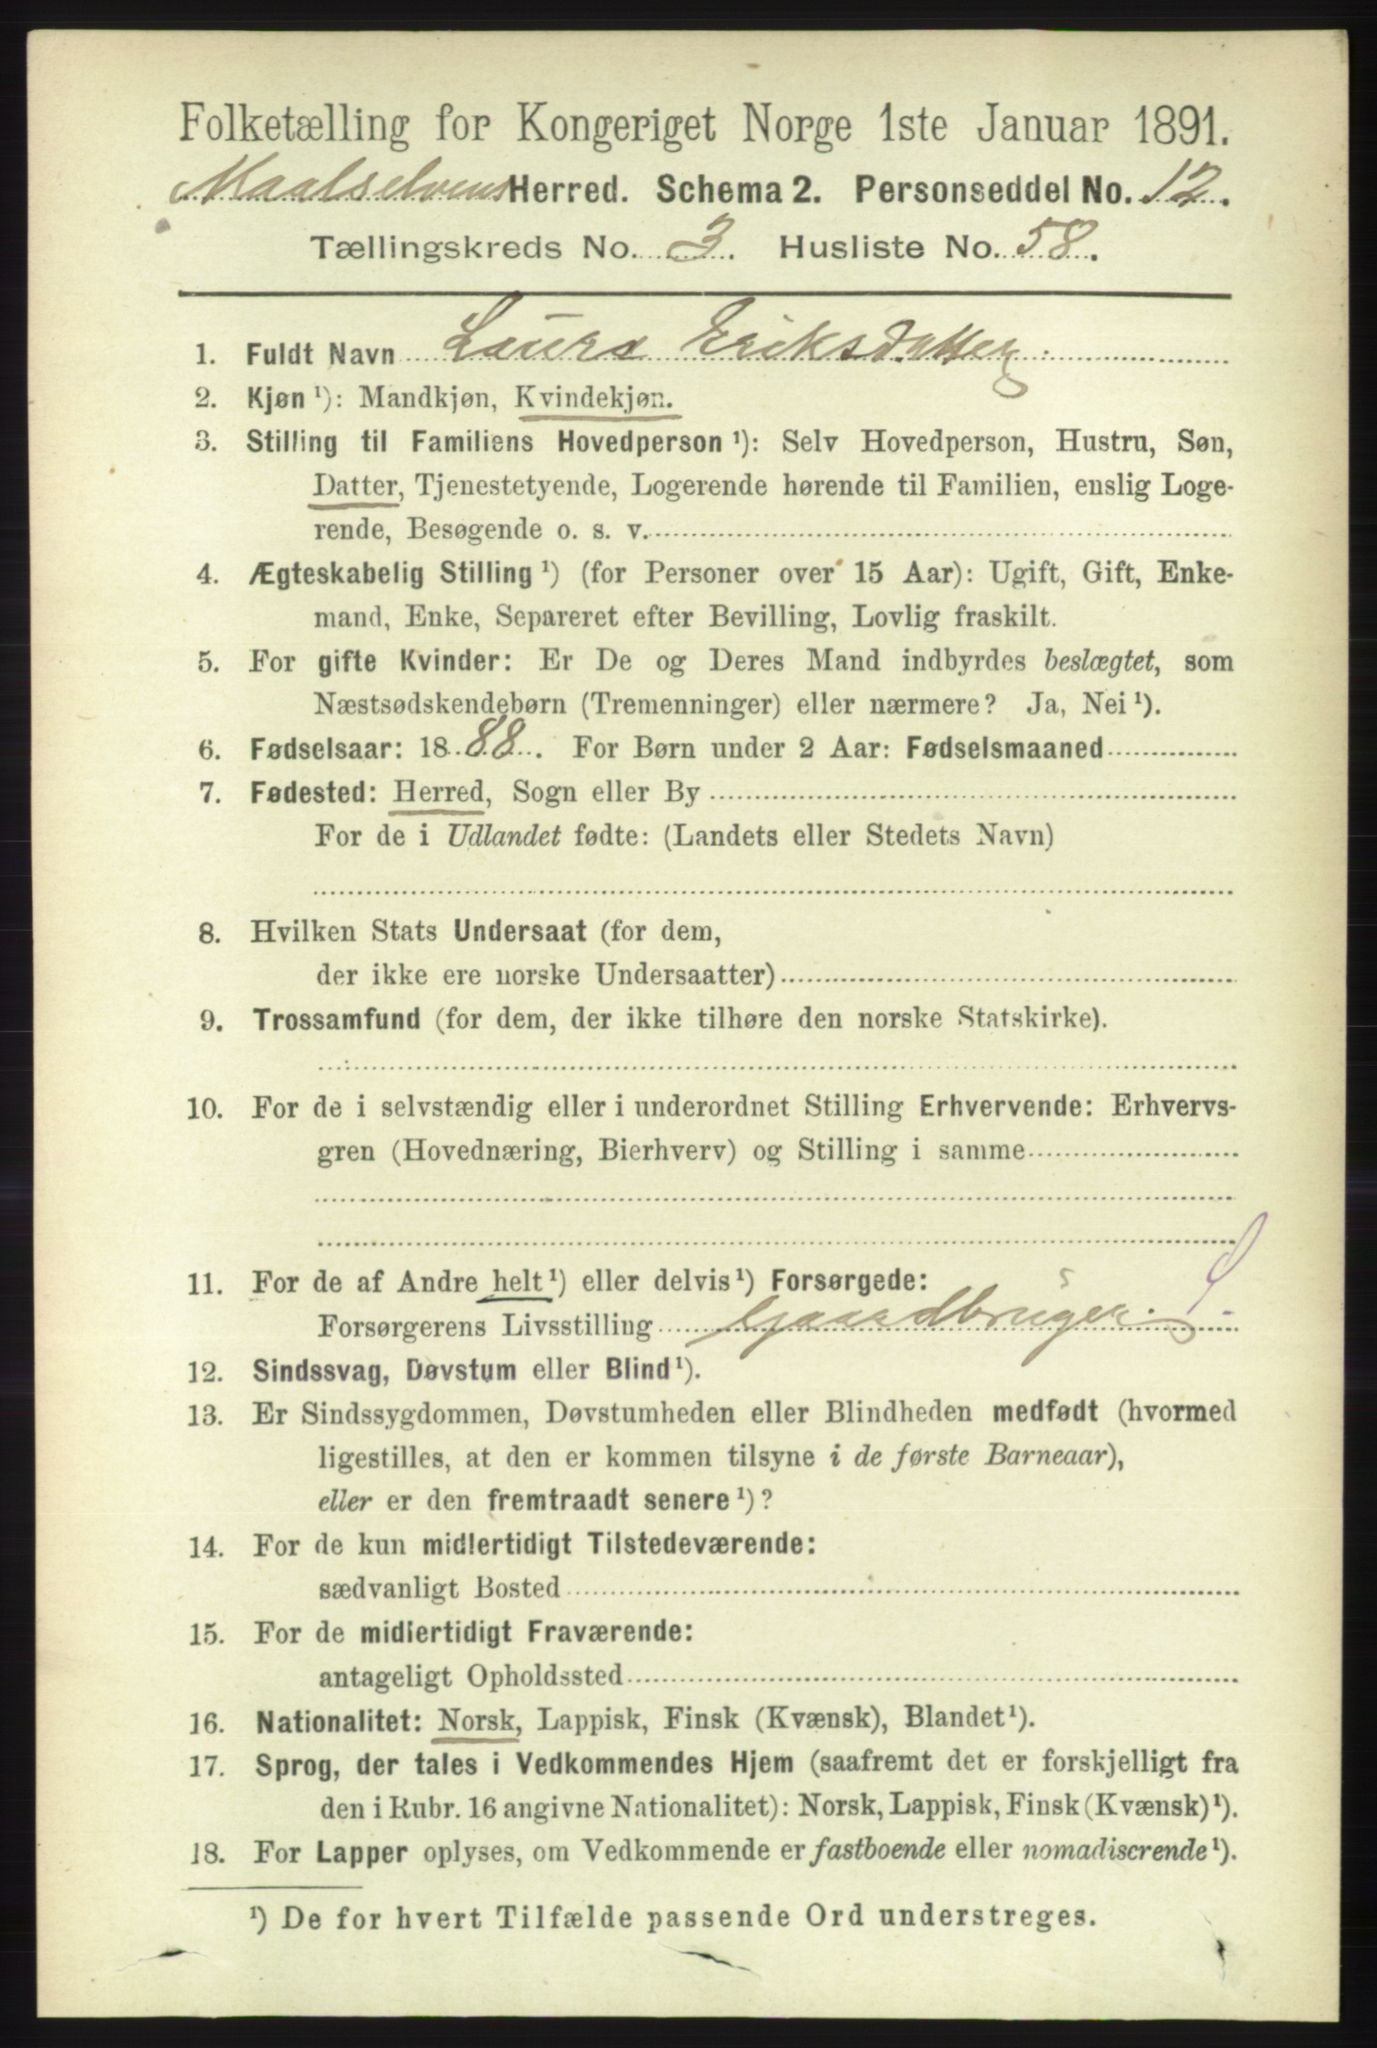 Folketælling for Kongeriget Norge 1ste Januar 1891.
Maalselvens Herred. Schema 2. Personseddel No. 12.
Tællingskreds No. 3. Husliste No. 58.
1. Fuldt Navn Laura Eriksdatter
2. Kjøn ¹): Mandkjøn, Kvindekjøn.
3. Stilling til Familiens Hovedperson ¹): Selv Hovedperson, Hustru, Søn,
Datter, Tjenestetyende, Logerende hørende til Familien, enslig Loge-
rende, Besøgende o. s. v.
4. Ægteskabelig Stilling ¹) (for Personer over 15 Aar): Ugift, Gift, Enke-
mand, Enke, Separeret efter Bevilling, Lovlig fraskilt.
5. For gifte Kvinder: Er De og Deres Mand indbyrdes beslægtet, som
Næstsødskendebørn (Tremenninger) eller nærmere? Ja, Nei ¹).
6. Fødselsaar: 1888. For Børn under 2 Aar: Fødselsmaaned
7. Fødested: Herred, Sogn eller By
For de i Udlandet fødte: (Landets eller Stedets Navn)
8. Hvilken Stats Undersaat (for dem,
der ikke ere norske Undersaatter)
9. Trossamfund (for dem, der ikke tilhøre den norske Statskirke).
10. For de i selvstændig eller i underordnet Stilling Erhvervende: Erhvervs-
gren (Hovednæring, Bierhverv) og Stilling i samme
11. For de af Andre helt ¹) eller delvis ¹) Forsørgede:
Forsørgerens Livsstilling Gaardbruger.
12. Sindssvag, Døvstum eller Blind ¹).
13. Er Sindssygdommen, Døvstumheden eller Blindheden medfødt (hvormed
ligestilles, at den er kommen tilsyne i de første Barneaar),
eller er den fremtraadt senere ¹)?
14. For de kun midlertidigt Tilstedeværende:
sædvanligt Bosted
15. For de midlertidigt Fraværende:
antageligt Opholdssted
16. Nationalitet: Norsk, Lappisk, Finsk (Kvænsk), Blandet ¹).
17. Sprog, der tales i Vedkommendes Hjem (saafremt det er forskjelligt fra
den i Rubr. 16 angivne Nationalitet): Norsk, Lappisk, Finsk (Kvænsk) ¹).
18. For Lapper oplyses, om Vedkommende er fastboende eller nomadiserende ¹).
¹) De for hvert Tilfælde passende Ord understreges.